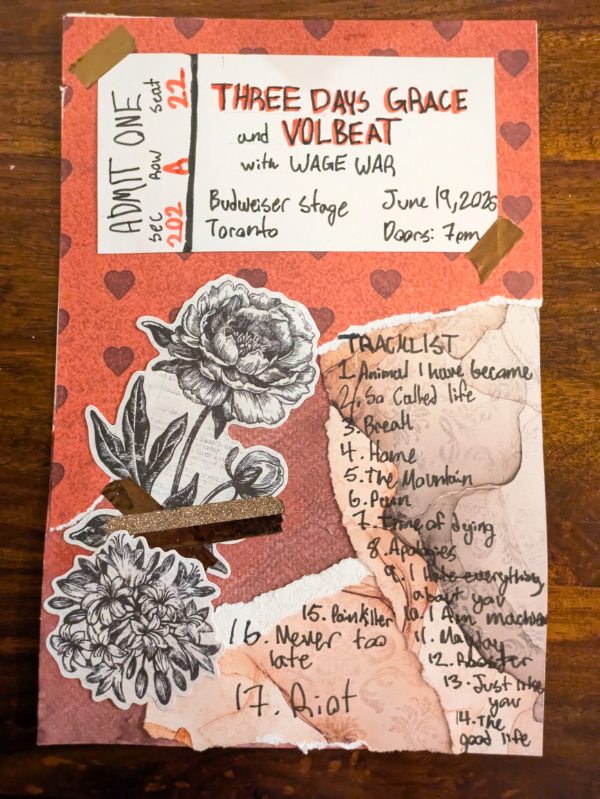 ADMIT ONE
Sec Row Seat
202 A 22
THREE DAYS GRACE
and VOLBEAT
with WAGE WAR
Budweiser Stage June 19, 2026
Toronto Doors: 7pm
TRACKLIST
1. Animal I have became
2. So Called life
3. Break
4. Home
5. The Mountain
6. Pain
7. Time of dying
8. Apologies
9. I Hate everything
about you
10. I Am machine
11. Mayday
12. Rooster
13. Just like
you
14. The
good life
15. Painkiller
16. Never too
late
17. Riot